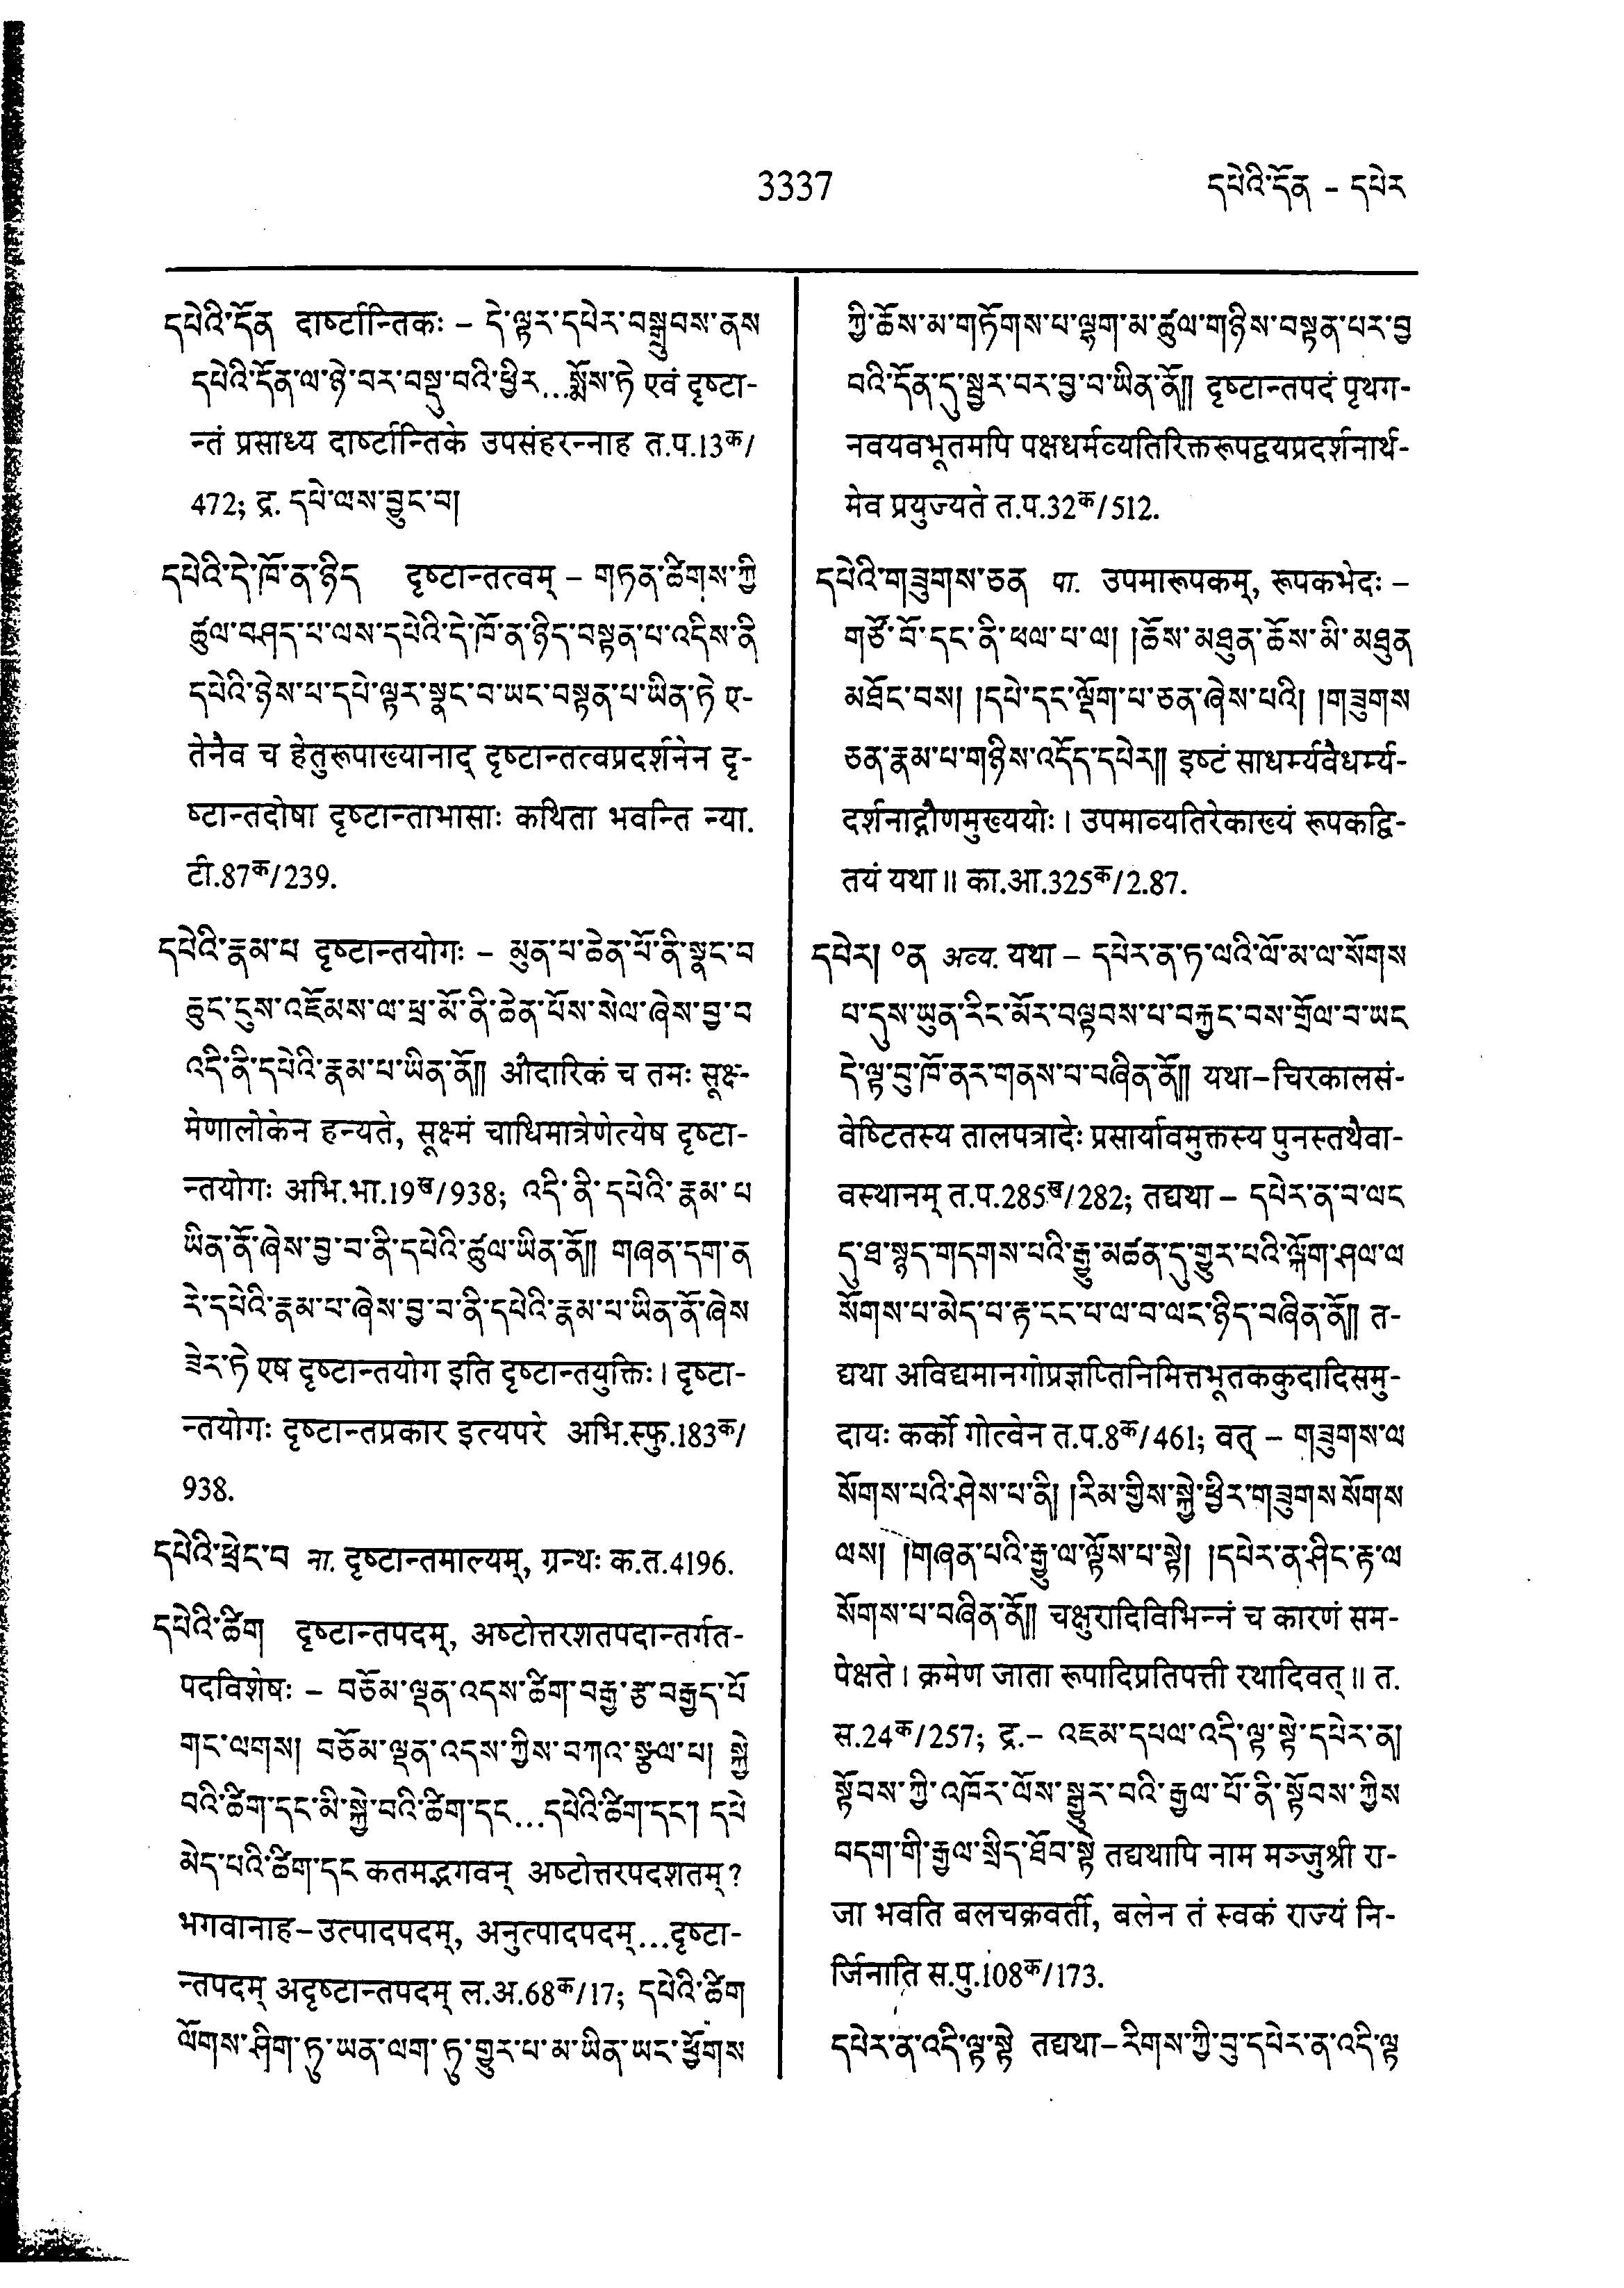 3337
དཔེའི་དོན – དཔེར
དཔེའི་དོན दार्ष्टान्तिकः – དེ་ལྟར་དཔེར་བསྒྲུབས་ནས
དཔེའི་དོན་ལ་ཉེ་བར་བསྡུ་བའི་ཕྱིར...སྨོས་ཏེ एवं दृष्टा-
न्तं प्रसाध्य दार्ष्टान्तिके उपसंहरन्नाह त.प.13क/
472; द्र. དཔེ་ལས་བྱུང་བ།
དཔེའི་དེ་ཁོ་ན་ཉིད दृष्टान्ततत्वम् – གཏན་ཚིགས་ཀྱི
ཚུལ་བཤད་པ་ལས་དཔེའི་དེ་ཁོ་ན་ཉིད་བསྟན་པ་འདིས་ནི
དཔེའི་ཉེས་པ་དཔེ་ལྟར་སྣང་བ་ཡང་བསྟན་པ་ཡིན་ཏེ ए-
तेनैव च हेतुरूपाख्यानाद् दृष्टान्तत्वप्रदर्शनेन दृ-
ष्टान्तदोषा दृष्टान्ताभासाः कथिता भवन्ति न्या.
टी.87क/239.
དཔེའི་རྣམ་པ दृष्टान्तयोगः – མུན་པ་ཆེན་པོ་ནི་སྣང་བ
ཆུང་ངུས་འཇོམས་ལ་ཕྲ་མོ་ནི་ཆེན་པོས་སེལ་ཞེས་བྱ་བ
འདི་ནི་དཔེའི་རྣམ་པ་ཡིན་ནོ༎ औदारिकं च तमः सूक्ष्-
मेणालोकेन हन्यते, सूक्ष्मं चाधिमात्रेणेत्येष दृष्टा-
न्तयोगः अभि.भा.19ख/938; འདི་ནི་དཔེའི་རྣམ་པ
ཡིན་ནོ་ཞེས་བྱ་བ་ནི་དཔེའི་ཚུལ་ཡིན་ནོ༎ གཞན་དག་ན
རེ་དཔེའི་རྣམ་པ་ཞེས་བྱ་བ་ནི་དཔེའི་རྣམ་པ་ཡིན་ནོ་ཞེས
ཟེར་ཏེ एष दृष्टान्तयोग इति दृष्टान्तयुक्तिः। दृष्टा-
न्तयोगः दृष्टान्तप्रकार इत्यपरे अभि.स्फु.183क/
938.
དཔེའི་ཕྲེང་བ ना. दृष्टान्तमाल्यम्, ग्रन्थः क.त.4196.
དཔེའི་ཚིག दृष्टान्तपदम्, अष्टोत्तरशतपदान्तर्गत-
पदविशेषः – བཅོམ་ལྡན་འདས་ཚིག་བརྒྱ་རྩ་བརྒྱད་པོ
གང་ལགས། བཅོམ་ལྡན་འདས་ཀྱིས་བཀའ་སྩལ་པ། སྐྱེ
བའི་ཚིག་དང་མི་སྐྱེ་བའི་ཚིག་དང...དཔེའི་ཚིག་དང། དཔེ
མེད་པའི་ཚིག་དང कतमद्भगवन् अष्टोत्तरपदशतम्?
भगवानाह–उत्पादपदम्, अनुत्पादपदम्...दृष्टा-
न्तपदम् अदृष्टान्तपदम् ल.अ.68क/17; དཔེའི་ཚིག
ལོགས་ཤིག་ཏུ་ཡན་ལག་ཏུ་གྱུར་པ་མ་ཡིན་ཡང་ཕྱོགས
ཀྱི་ཆོས་མ་གཏོགས་པ་ལྷག་མ་ཚུལ་གཉིས་བསྟན་པར་བྱ
བའི་དོན་དུ་སྦྱར་བར་བྱ་བ་ཡིན་ནོ༎ दृष्टान्तपदं पृथग-
नवयवभूतमपि पक्षधर्मव्यतिरिक्तरूपद्वयप्रदर्शनार्थ-
मेव प्रयुज्यते त.प.32क/512.
དཔེའི་གཟུགས་ཅན पा. उपमारूपकम्, रूपकभेदः –
གཙོ་བོ་དང་ནི་ཕལ་པ་ལ། །ཆོས་མཐུན་ཆོས་མི་མཐུན
མཐོང་བས། །དཔེ་དང་ལྡོག་པ་ཅན་ཞེས་པའི། །གཟུགས
ཅན་རྣམ་པ་གཉིས་འདོད་དཔེར༎ इष्टं साधर्म्यवैधर्म्य-
दर्शनाद्गौणमुख्ययोः। उपमाव्यतिरेकाख्यं रूपकद्वि-
तयं यथा॥ का.आ.325क/2.87.
དཔེར། ༠ན अव्य. यथा – དཔེར་ན་ཏ་ལའི་ལོ་མ་ལ་སོགས
པ་དུས་ཡུན་རིང་མོར་བལྟབས་པ་བརྐྱང་བས་གྲོལ་བ་ཡང
དེ་ལྟ་བུ་ཁོ་ནར་གནས་པ་བཞིན་ནོ༎ यथा–चिरकालसं-
वेष्टितस्य तालपत्रादेः प्रसार्यावमुक्तस्य पुनस्तथैवा-
वस्थानम् त.प.285ख/282; तद्यथा – དཔེར་ན་བ་ལང
དུ་ཐ་སྙད་གདགས་པའི་རྒྱུ་མཚན་དུ་གྱུར་པའི་ལྐོག་ཤལ་ལ
སོགས་པ་མེད་པ་རྟ་ངང་པ་ལ་བ་ལང་ཉིད་བཞིན་ནོ༎ त-
द्यथा अविद्यमानगोप्रज्ञप्तिनिमित्तभूतककुदादिसमु-
दायः कर्को गोत्वेन त.प.8क/461; वत् – གཟུགས་ལ
སོགས་པའི་ཤེས་པ་ནི། །རིམ་གྱིས་སྐྱེ་ཕྱིར་གཟུགས་སོགས
ལས། །གཞན་པའི་རྒྱུ་ལ་ལྟོས་པ་སྟེ། །དཔེར་ན་ཤིང་རྟ་ལ
སོགས་པ་བཞིན་ནོ༎ चक्षुरादिविभिन्नं च कारणं सम-
पेक्षते। क्रमेण जाता रूपादिप्रतिपत्ती रथादिवत्॥ त.
स.24क/257; द्र.– འཇམ་དཔལ་འདི་ལྟ་སྟེ་དཔེར་ན།
སྟོབས་ཀྱི་འཁོར་ལོས་སྒྱུར་བའི་རྒྱལ་པོ་ནི་སྟོབས་ཀྱིས
བདག་གི་རྒྱལ་སྲིད་ཐོབ་སྟེ तद्यथापि नाम मञ्जुश्री रा-
जा भवति बलचक्रवर्ती, बलेन तं स्वकं राज्यं नि-
र्जिनाति स.पु.108क/173.
དཔེར་ན་འདི་ལྟ་སྟེ तद्यथा–རིགས་ཀྱི་བུ་དཔེར་ན་འདི་ལྟ